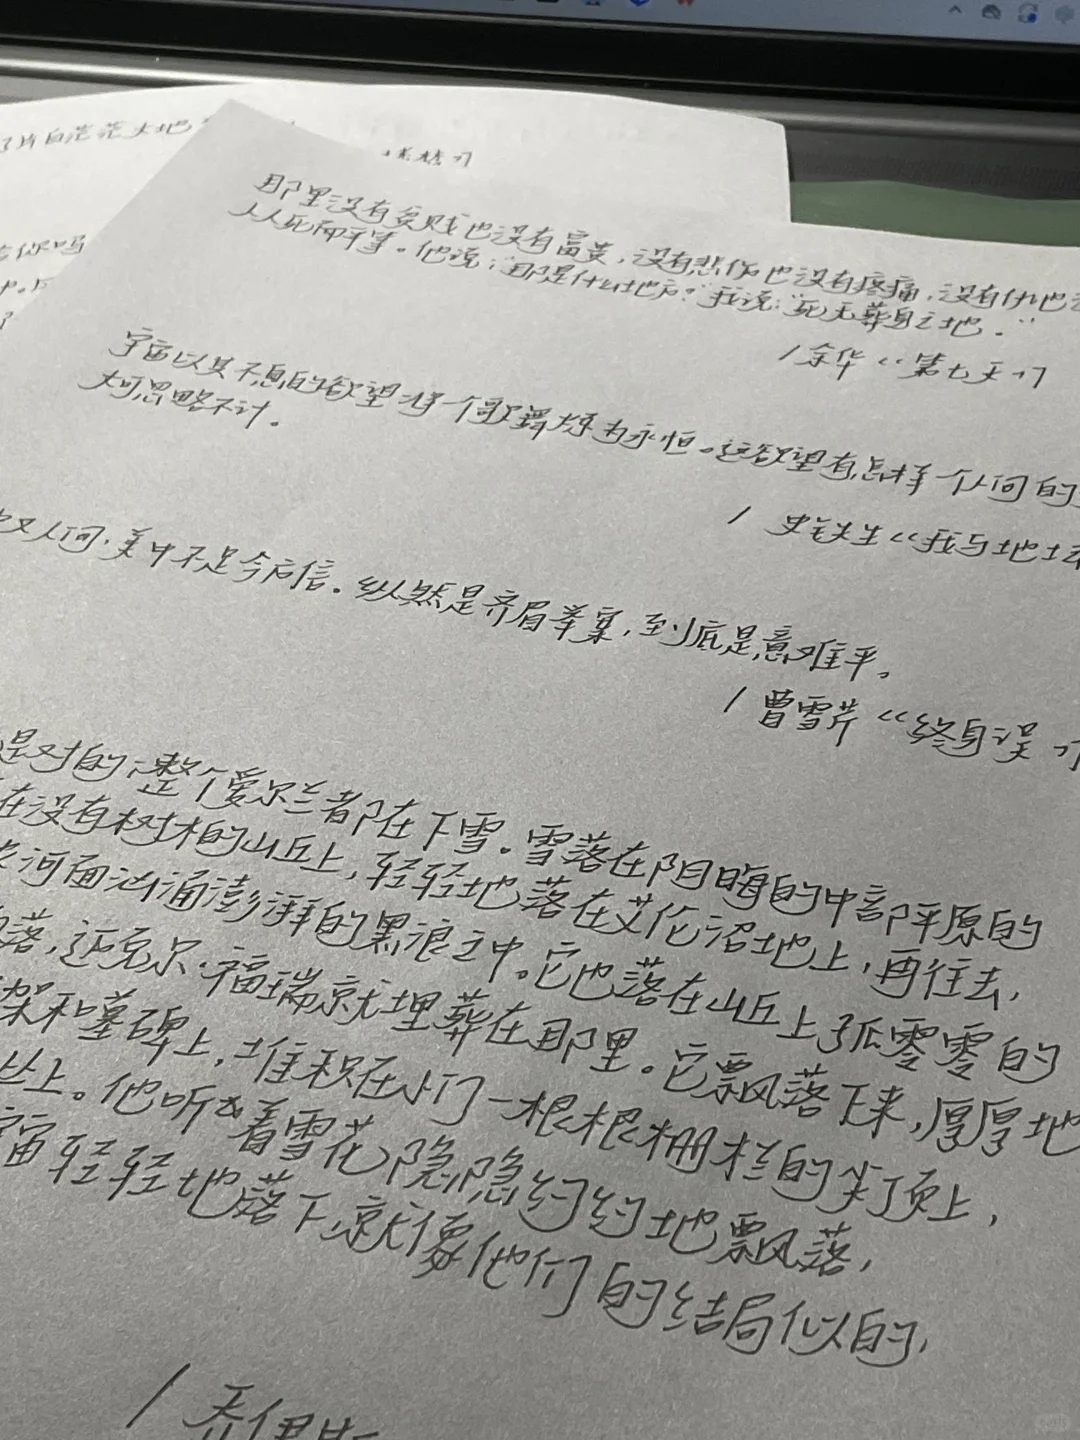 片白茫茫大地
那里没有贫贱也没有富贵，没有悲伤也没有疼痛，没有仇也
人人死而平等。他说：“那是什么地方？”我说：“死无葬身之地。”
/余华《第七天》
宇宙以其不息的欲望将一个歌舞炼为永恒。这欲望有怎样一个人间的
大可忽略不计。
/史铁生《我与地坛
人间，美中不足今方信。纵然是齐眉举案，到底是意难平。
/曹雪芹《终身误》
是对的：整个爱尔兰都在下雪。雪落在阴晦的中部平原的
在没有树木的山丘上，轻轻地落在艾伦沼地上，再往去，
河面汹涌澎湃的黑浪之中。它也落在山丘上孤零零的
落，迈克尔·福瑞就埋葬在那里。它飘落下来，厚厚地
架和墓碑上，堆积在小门一根根栅栏的尖顶上，
丛上。他听着雪花隐隐约约地飘落，
宙轻轻地落下，就像他们的结局似的，
/乔伊斯